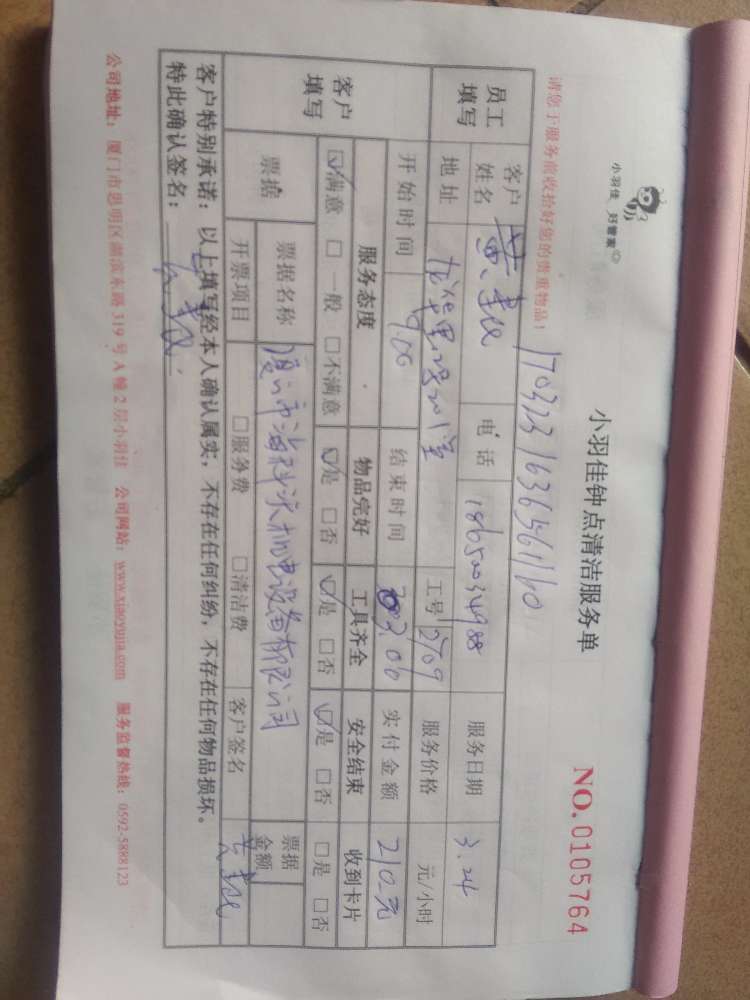 小羽佳 好管家
小羽佳钟点清洁服务单
NO.0105764
请您于服务前收拾好您的贵重物品！
170323163656160
员工填写 客户姓名 黄 电话 18650034988 服务日期 3.24
地址 龙华里 室 工号 2709 服务价格 元/小时
客户填写 开始时间 9.00 结束时间 .00 实付金额 210元
服务态度 物品完好 工具齐全 安全结束 收到卡片
☑满意 □一般 □不满意 ☑是 □否 ☑是 □否 ☑是 □否 □是 □否
票据 票据名称 厦门市海 机电设备有限公司 票据金额
开票项目 □服务费 □清洁费 客户签名 黄
客户特别承诺：以上填写经本人确认属实，不存在任何纠纷，不存在任何物品损坏。
特此确认签名： 黄
公司地址：厦门市思明区湖滨东路319号A幢2层小羽佳 公司网站：www.xiaoyujia.com 服务监督热线：0592-5888123